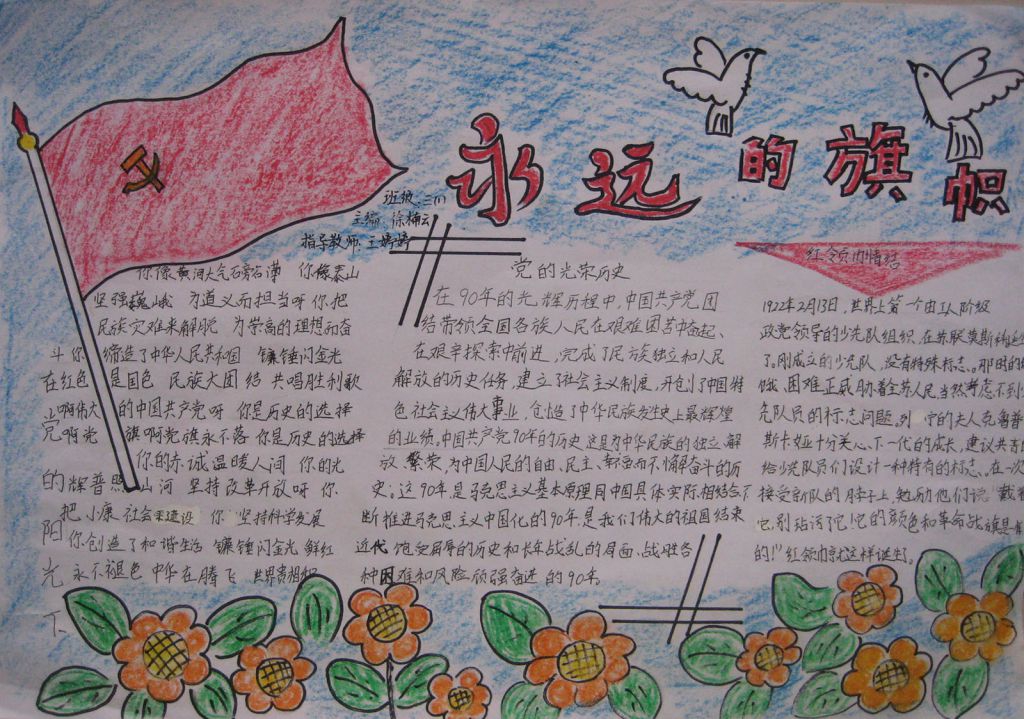 永远的旗帜
班级:三(1)
主编:徐楠云
指导教师:王婷婷
你像黄河大气石旁石薄 你像泰山
坚强巍峨 为道义而担当呀你把
民族灾难来解脱 为崇高的理想而奋
斗你 缔造了中华人民共和国 镰锤闪金光
在红色 是国色 民族大团结 共唱胜利歌
党啊伟大 的中国共产党呀 你是历史的选择
党啊党 旗啊党旗永不落 你是历史的选择
你的赤诚温暖人间 你的光
的辉普照 山河 坚持改革开放呀 你
把小康社会来建设 你 坚持科学发展
阳 你创造了和谐生活 镰锤闪金光 鲜红
光 永不褪色 中华在腾飞 世界贵相和
下
党的光荣历史
在90年的光辉历程中,中国共产党团
结带领全国各族人民在艰难困苦中奋起、
在艰辛探索中前进,完成了民族独立和人民
解放的历史任务,建立了社会主义制度,开创了中国特
色社会主义伟大事业,创造了中华民族发生史上最辉煌
的业绩。中国共产党90年的历史,这是为中华民族的独立、解
放、繁荣,为中国人民的自由、民主、幸福而不懈奋斗的历
史;这90年,是马克思主义基本原理同中国具体实际相结合不
断推进马克思主义中国化的90年,是我们伟大的祖国结束
近代饱受屈辱的历史和长年战乱的局面、战胜各
种困难和风险顽强奋进的90年
红领巾的情结
1922年2月13日,世界上第一个由工人阶级
政党领导的少先队组织,在苏联莫斯科
了。刚成立的少先队,没有特殊标志。那时的
饿、困难正威胁着全苏人民,当然考虑不到
先队员的标志问题。列 宁的夫人克鲁普
斯卡娅十分关心下一代的成长,建议共青
给少先队员们设计一种特有的标志。在一次
接受新队的脖子上,勉励他们说:"戴
它,别玷污了它!它的颜色和革命战旗是一
的!"红领巾就这样诞生。